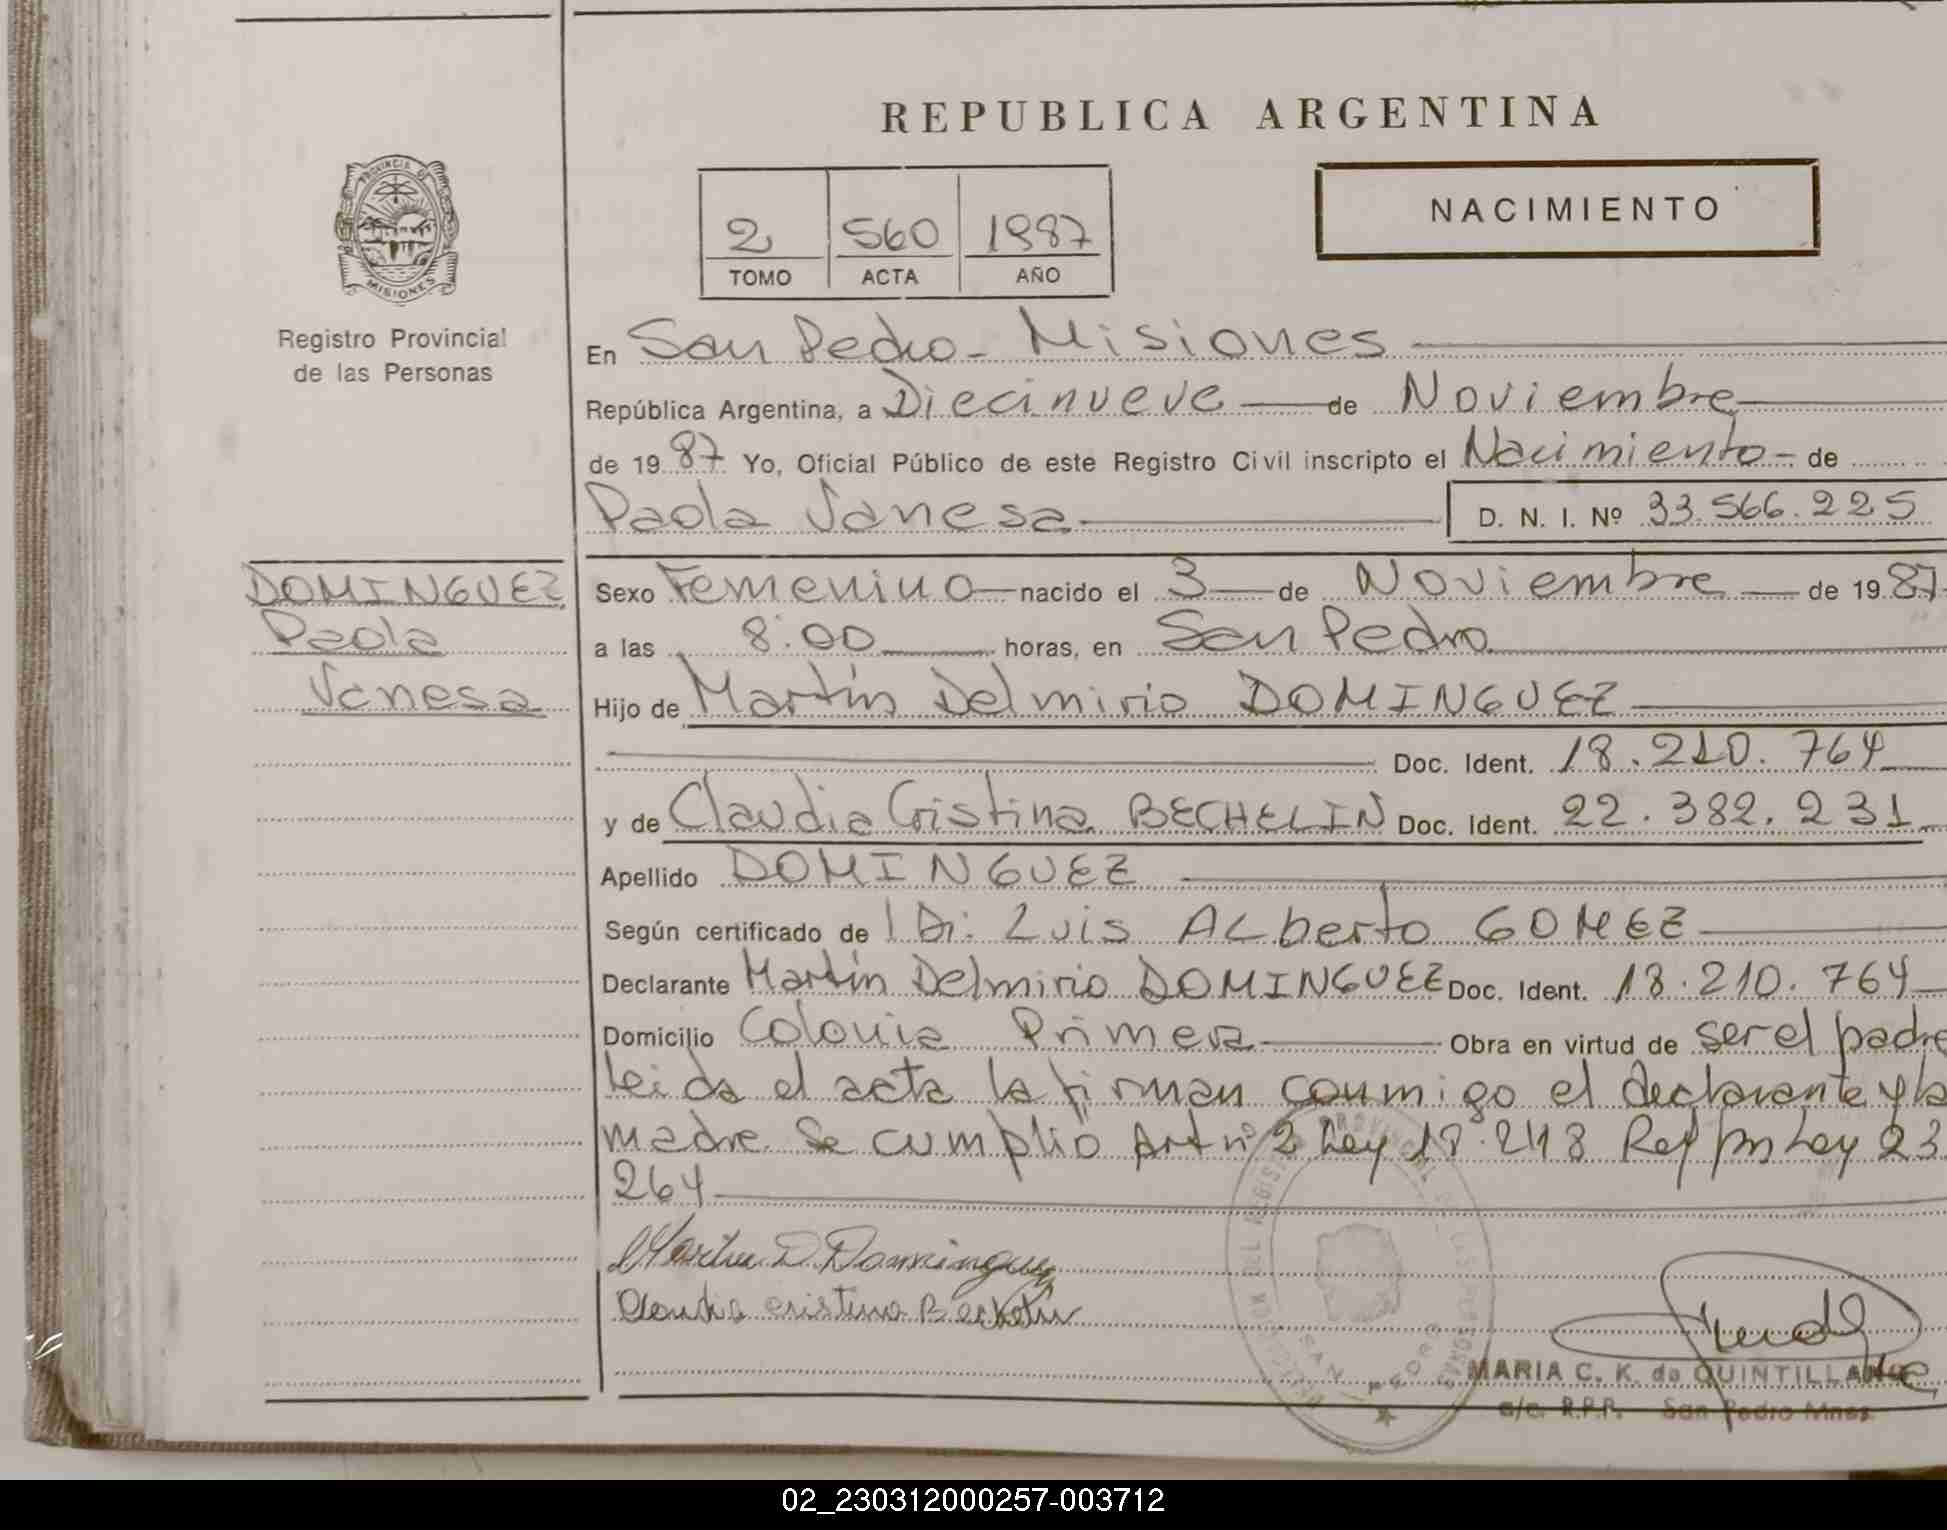 REPUBLICA ARGENTINA
PROVINCIA DE
MISIONES
Registro Provincial
de las Personas
2 560 1987
TOMO ACTA AÑO
NACIMIENTO
En San Pedro - Misiones
República Argentina, a Diecinueve de Noviembre
de 19 87 Yo, Oficial Público de este Registro Civil inscripto el Nacimiento - de
Paola Vanesa D. N. I. Nº 33.566.225
DOMINGUEZ
Paola
Vanesa
Sexo Femenino nacido el 3 de Noviembre de 19 87
a las 8:00 horas, en San Pedro
Hijo de Martín Delmirio DOMINGUEZ
Doc. Ident. 18.210.764
y de Claudia Cristina BECHELIN Doc. Ident. 22.382.231
Apellido DOMINGUEZ
Según certificado de Luis ALberto GOMEZ
Declarante Martín Delmirio DOMINGUEZ Doc. Ident. 18.210.764
Domicilio Colonia Primera Obra en virtud de ser el padre
leida el acta la firman conmigo el declarante y la
madre. Se cumplio Art nº 2 Ley 18.248 Ref por Ley 23.
264
Martin D. Dominguez
Claudia cristina Bechelin
SAN PEDRO
MARIA C. K. de QUINTILLAN
a/c. R.P.P. San Pedro Mnes.
02_230312000257-003712